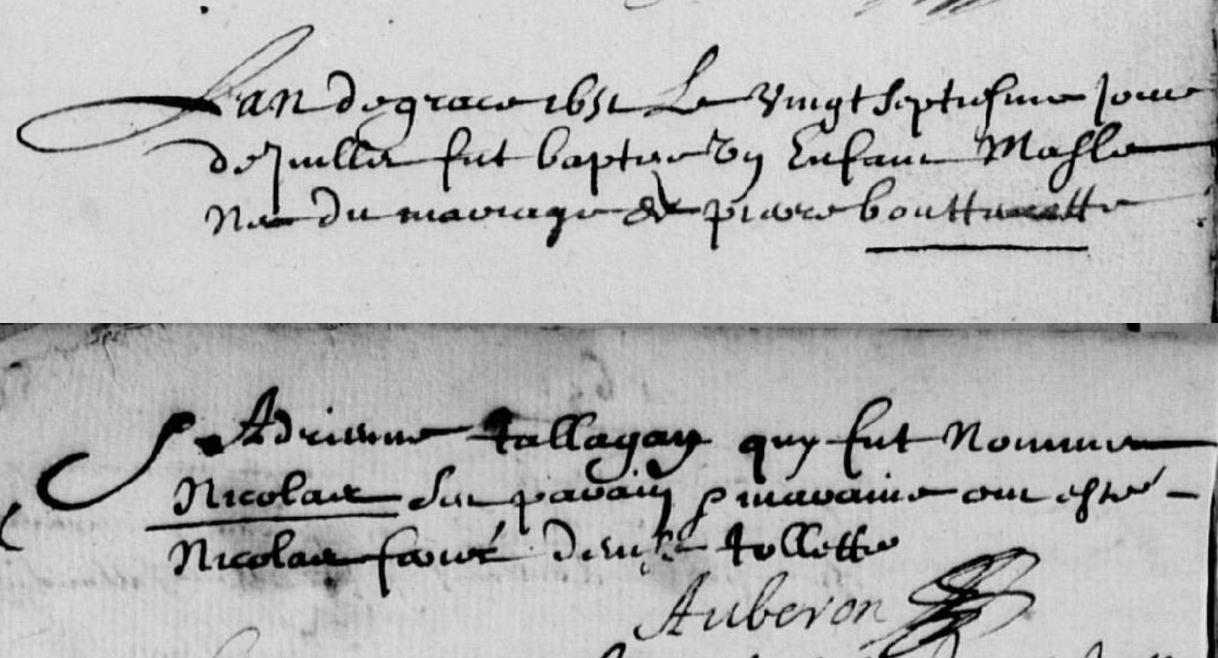 Lan de grace 1651 Le Vingt septiesme Jour
de Juillet fut baptise Vn Enfant Masle
Ne du mariage de pierre
& Adrienne tallagan quy fut Nomme
Nicolas Son parain & maraine ont esté -
Nicolas fauré tollette
Auberon